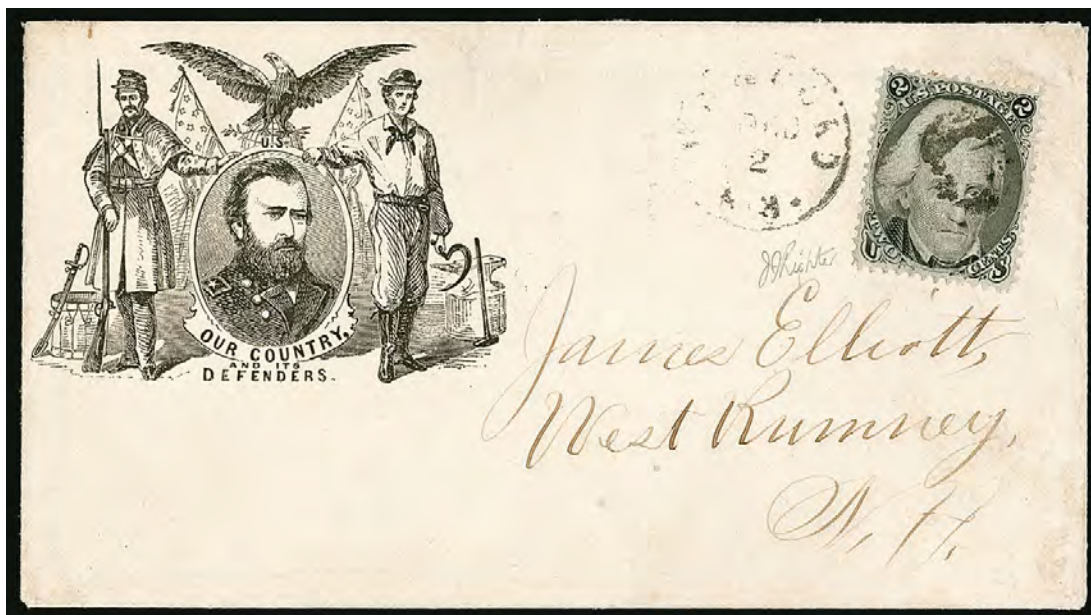 U.S.
OUR COUNTRY,
AND ITS
DEFENDERS.
2 U.S. POSTAGE 2
2
CENTS
James Elliott,
West Rumney,
N. H.